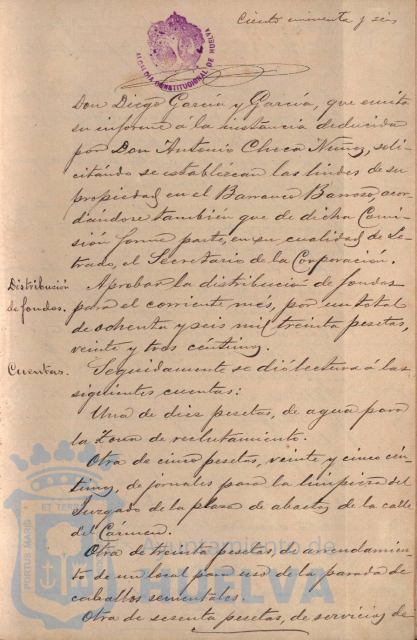 Ciento noventa y seis
ALCALDIA CONSTITUCIONAL DE HUELVA
Don Diego García y García, que emita
su informe á la instancia deducida
por Don Antonio Checa Núñez, soli-
citándo se establezcan las lindes de su
propiedad en el Barranco Barroso, acor-
dándose también que de dicha Comi-
sión forme parte, en su cualidad de Le-
trado, el Secretario de la Corporación.
Distribución
de fondos.
Aprobar la distribución de fondos
para el corriente mes, por un total
de ochenta y seis mil treinta pesetas,
veinte y tres céntimos.
Cuentas.
Seguidamente se dió lectura á las
siguientes cuentas:
Una de diez pesetas, de agua para
la Zona de reclutamiento.
Otra de cinco pesetas, veinte y cinco cén-
timos, de jornales para la limpieza del
Juzgado de la plaza de abastos de la calle
del Cármen.
Otra de treinta pesetas, de arrendamien-
to de un local para uso de la parada de
caballos sementales.
Otra de sesenta pesetas, de servicios de
PORTUS MARIS ET TERRAE
Ayuntamiento de
HUELVA